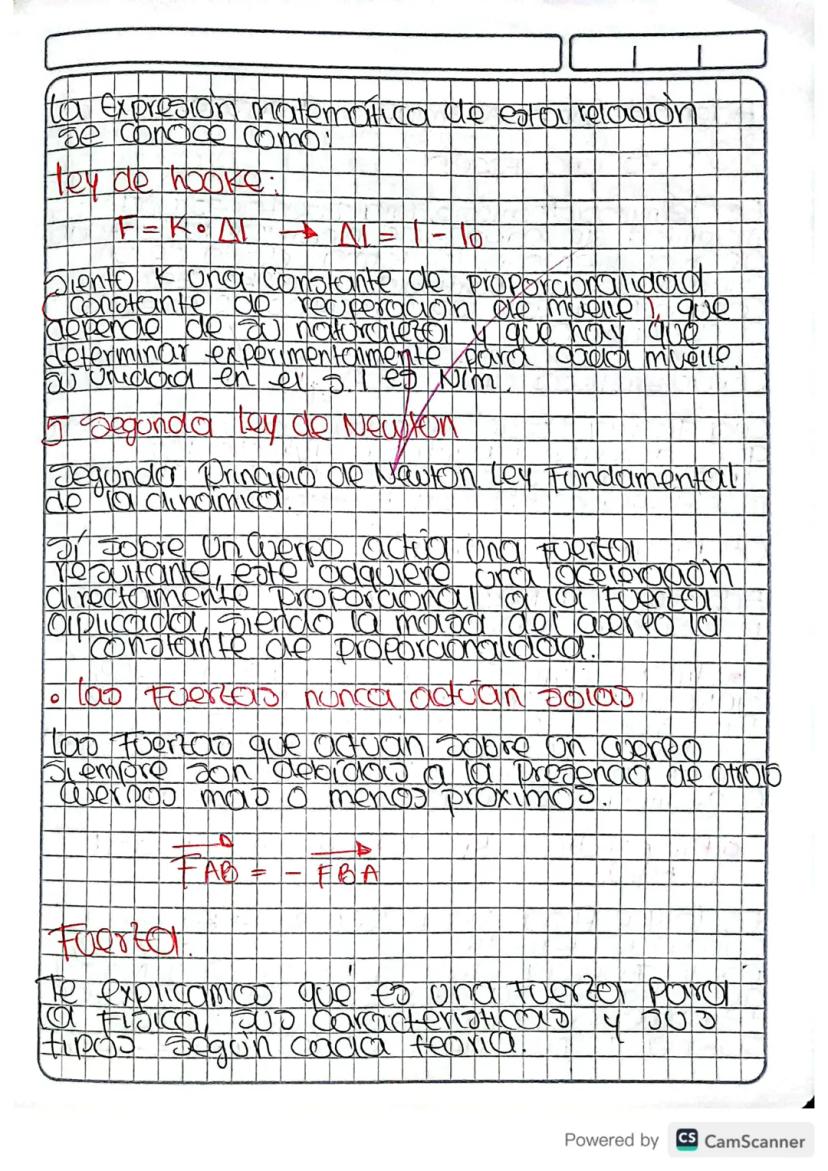 La Expresión matemática de esta relación
se conoce como:
ley de hooke:
F = K • Δl → Δl = l - lo
Siento K una Constante de proporcionalidad
(constante de recuperación de muelle), que
depende de su naturaleza y que hay que
determinar experimentalmente para cada muelle.
su unidad en el S.I es N/m.
5 Segunda Ley de Newton
Segundo Principio de Newton. Ley Fundamental
de la dinámica.
Sí sobre un Cuerpo actúa una fuerza
resultante, este adquiere una aceleración
directamente proporcional a la fuerza
aplicada, siendo la masa del cuerpo la
constante de proporcionalidad.
• las fuerzas nunca actúan solas
Las fuerzas que actuan sobre un cuerpo
siempre son debidas a la presencia de otros
cuerpos mas o menos proximos.
FAB = - FBA
Fuerza.
Te explicamos qué es una fuerza para
la Física, sus características y sus
tipos según cada teoría.
Powered by CS CamScanner